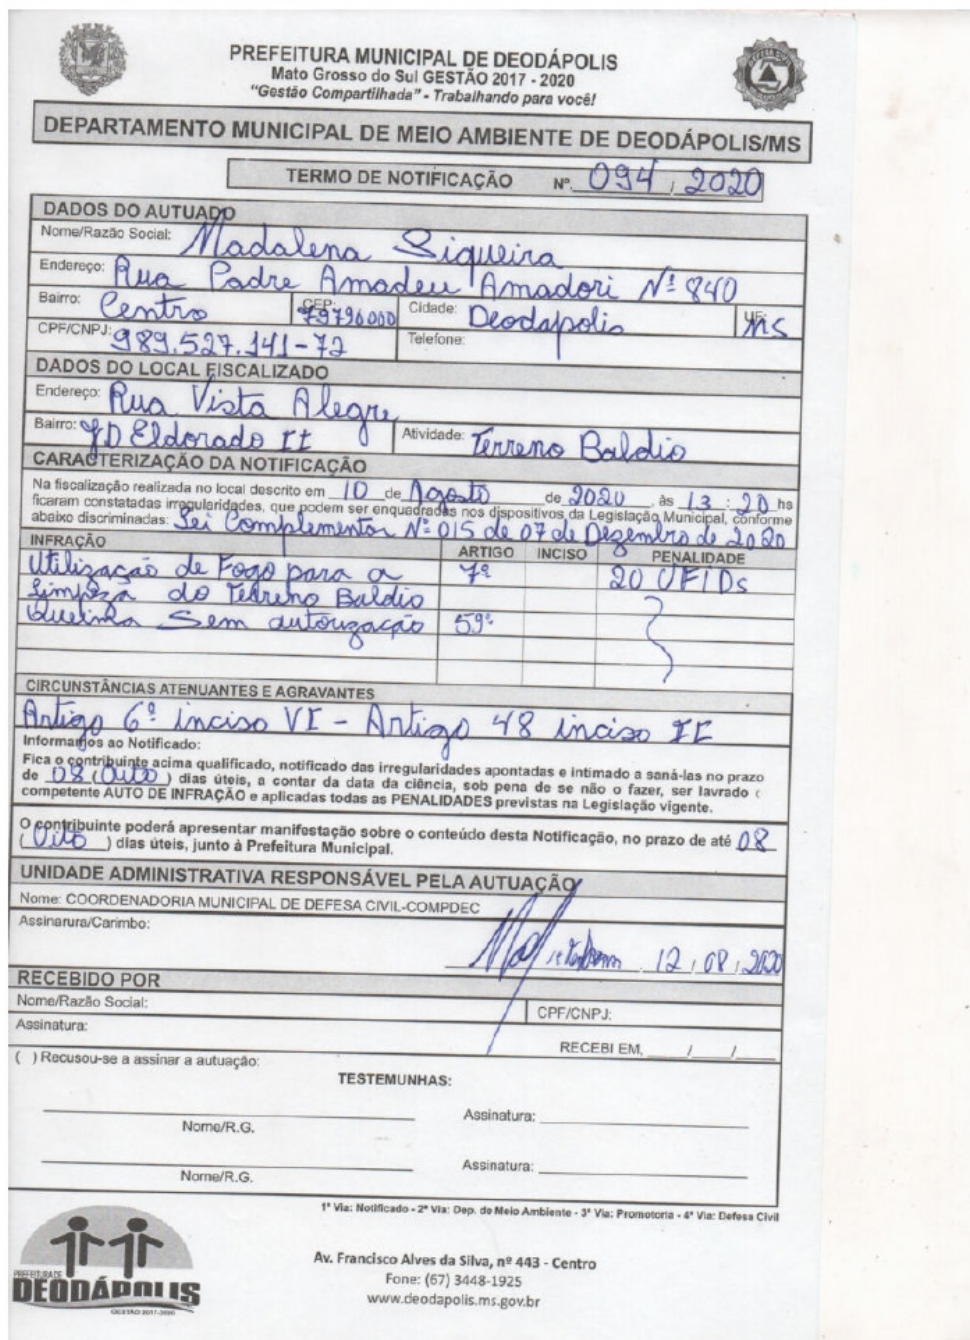 PREFEITURA MUNICIPAL DE DEODÁPOLIS
Mato Grosso do Sul GESTÃO 2017 - 2020
"Gestão Compartilhada" - Trabalhando para você!
DEPARTAMENTO MUNICIPAL DE MEIO AMBIENTE DE DEODÁPOLIS/MS
TERMO DE NOTIFICAÇÃO Nº. 094 / 2020
DADOS DO AUTUADO
Nome/Razão Social: Madalena Siqueira
Endereço: Rua Padre Amadeu Amadori Nº 840
Bairro: Centro CEP: 79790000 Cidade: Deodapolis UF: MS
CPF/CNPJ: 989.527.141-72 Telefone:
DADOS DO LOCAL FISCALIZADO
Endereço: Rua Vista Alegre
Bairro: JD Eldorado II Atividade: Terreno Baldio
CARACTERIZAÇÃO DA NOTIFICAÇÃO
Na fiscalização realizada no local descrito em 10 de Agosto de 2020, às 13 : 20 hs
ficaram constatadas irregularidades, que podem ser enquadradas nos dispositivos da Legislação Municipal, conforme
abaixo discriminadas: Lei Complementar Nº 015 de 07 de Dezembro de 2020
INFRAÇÃO ARTIGO INCISO PENALIDADE
Utilização de Fogo para a 7º 20 UFIDs
Limpeza do Terreno Baldio
Queima Sem autorização 59º
CIRCUNSTÂNCIAS ATENUANTES E AGRAVANTES
Artigo 6º inciso VI - Artigo 48 inciso II
Informamos ao Notificado:
Fica o contribuinte acima qualificado, notificado das irregularidades apontadas e intimado a saná-las no prazo
de 08 (Oito) dias úteis, a contar da data da ciência, sob pena de se não o fazer, ser lavrado
competente AUTO DE INFRAÇÃO e aplicadas todas as PENALIDADES previstas na Legislação vigente.
O contribuinte poderá apresentar manifestação sobre o conteúdo desta Notificação, no prazo de até 08
(Oito) dias úteis, junto à Prefeitura Municipal.
UNIDADE ADMINISTRATIVA RESPONSÁVEL PELA AUTUAÇÃO
Nome: COORDENADORIA MUNICIPAL DE DEFESA CIVIL-COMPDEC
Assinarura/Carimbo:
12 / 08 / 2020
RECEBIDO POR
Nome/Razão Social: CPF/CNPJ:
Assinatura:
RECEBI EM, ____/____/____
( ) Recusou-se a assinar a autuação:
TESTEMUNHAS:
Assinatura:
Nome/R.G.
Assinatura:
Nome/R.G.
1ª Via: Notificado - 2ª Via: Dep. de Meio Ambiente - 3ª Via: Promotoria - 4ª Via: Defesa Civil
PREFEITURA DE
DEODÁPOLIS
GESTÃO 2017-2020
Av. Francisco Alves da Silva, nº 443 - Centro
Fone: (67) 3448-1925
www.deodapolis.ms.gov.br